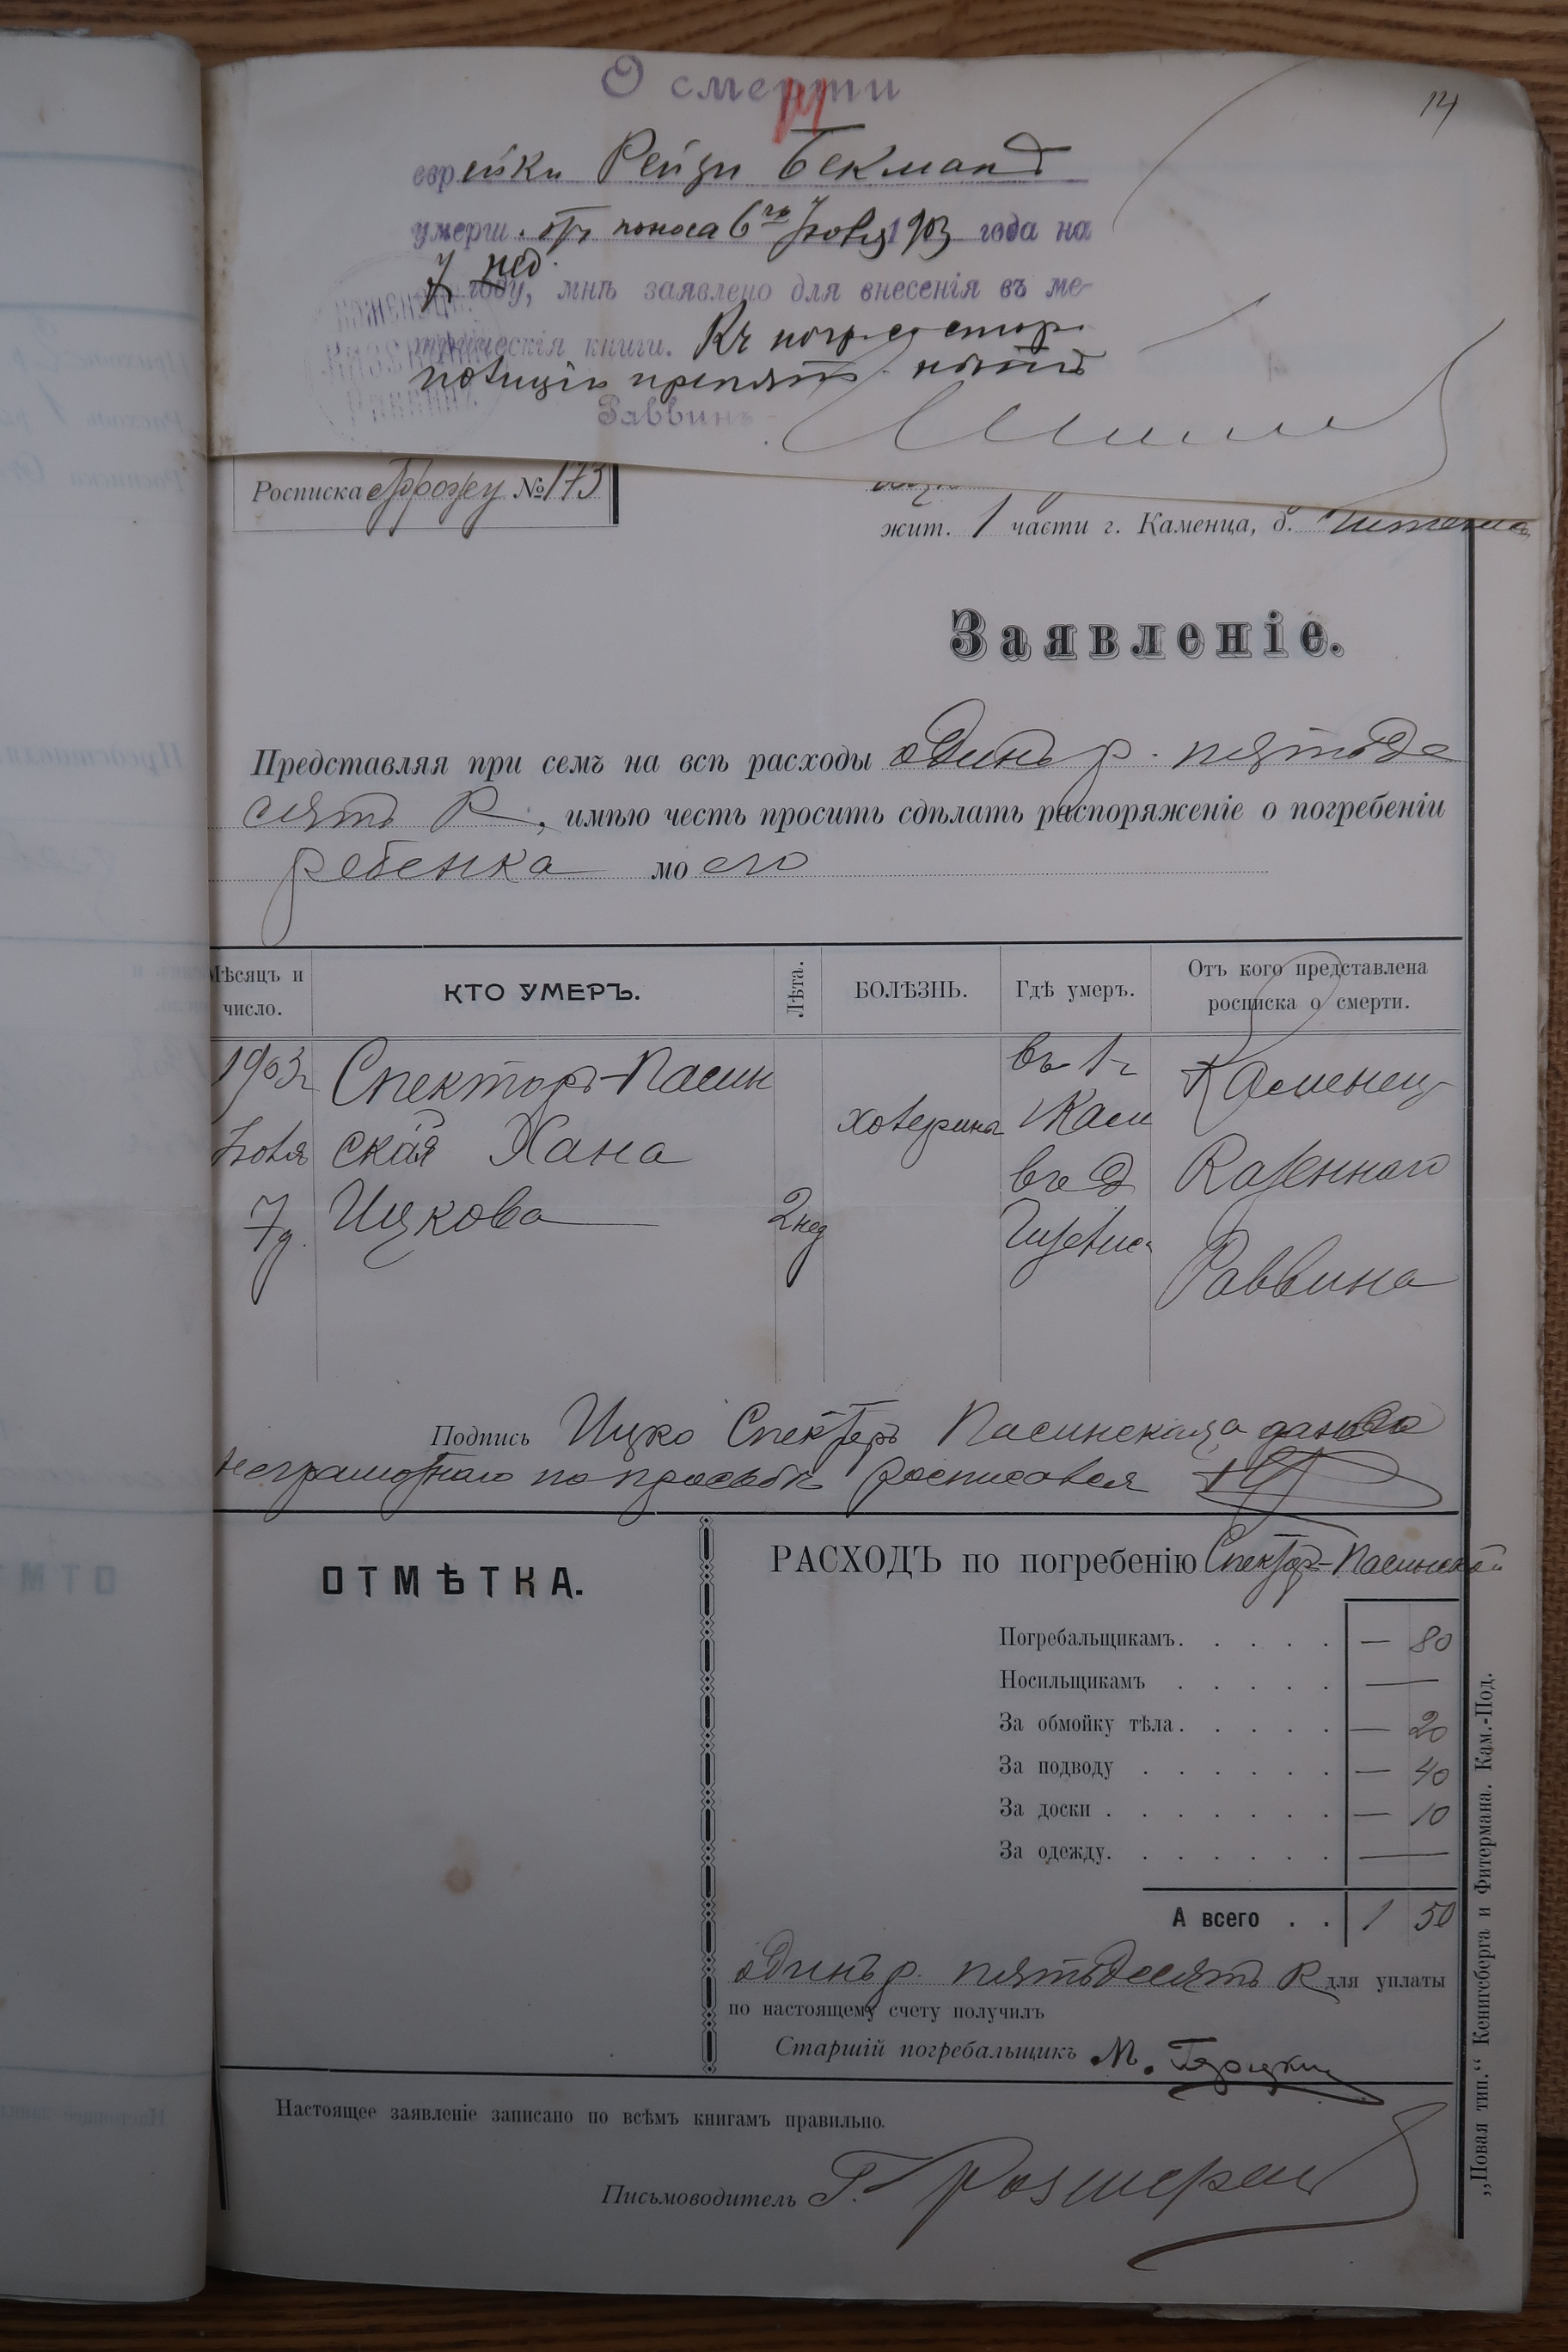 О смерти
14
еврейки Рейзи Бекманъ
умерш. отъ поноса 6го Іюля 1903 года на
7 нед. году, мнѣ заявлено для внесенія въ ме-
трическія книги. Къ погр. со стор.
полиціи препятс. нѣтъ
Раввинъ
Росписка сторожу № 173
жит. 1 части г. Каменца, д.
Заявленіе.
Представляя при семъ на всѣ расходы одинъ р. пятьде
сятъ К, имѣю честь просить сдѣлать распоряженіе о погребеніи
ребенка моего
Мѣсяцъ и число. КТО УМЕРЪ. Лѣта. БОЛѢЗНЬ. Гдѣ умеръ. Отъ кого представлена росписка о смерти.
1903г Спекторъ-Пасин въ 1ч Каменец
Іюля ская Хана холерина Кам Казеннаго
7д. Ицкова 2 нед въ д Раввина
Подпись Ицко Спекторъ Пасинская а за него
неграмотнаго по просьбѣ росписался
ОТМѢТКА.
РАСХОДЪ по погребенію Спекторъ-Пасинской
Погребальщикамъ. . . . . — 80
Носильщикамъ . . . . . —
За обмойку тѣла. . . . . — 20
За подводу . . . . . . — 40
За доски . . . . . . . — 10
За одежду. . . . . . . —
А всего . . 1 50
одинъ р. пятьдесятъ К для уплаты
по настоящему счету получилъ
Старшій погребальщикъ М.
Настоящее заявленіе записано по всѣмъ книгамъ правильно.
Письмоводитель Г.
„Новая тип.“ Кенигсберга и Фитермана. Кам.-Под.